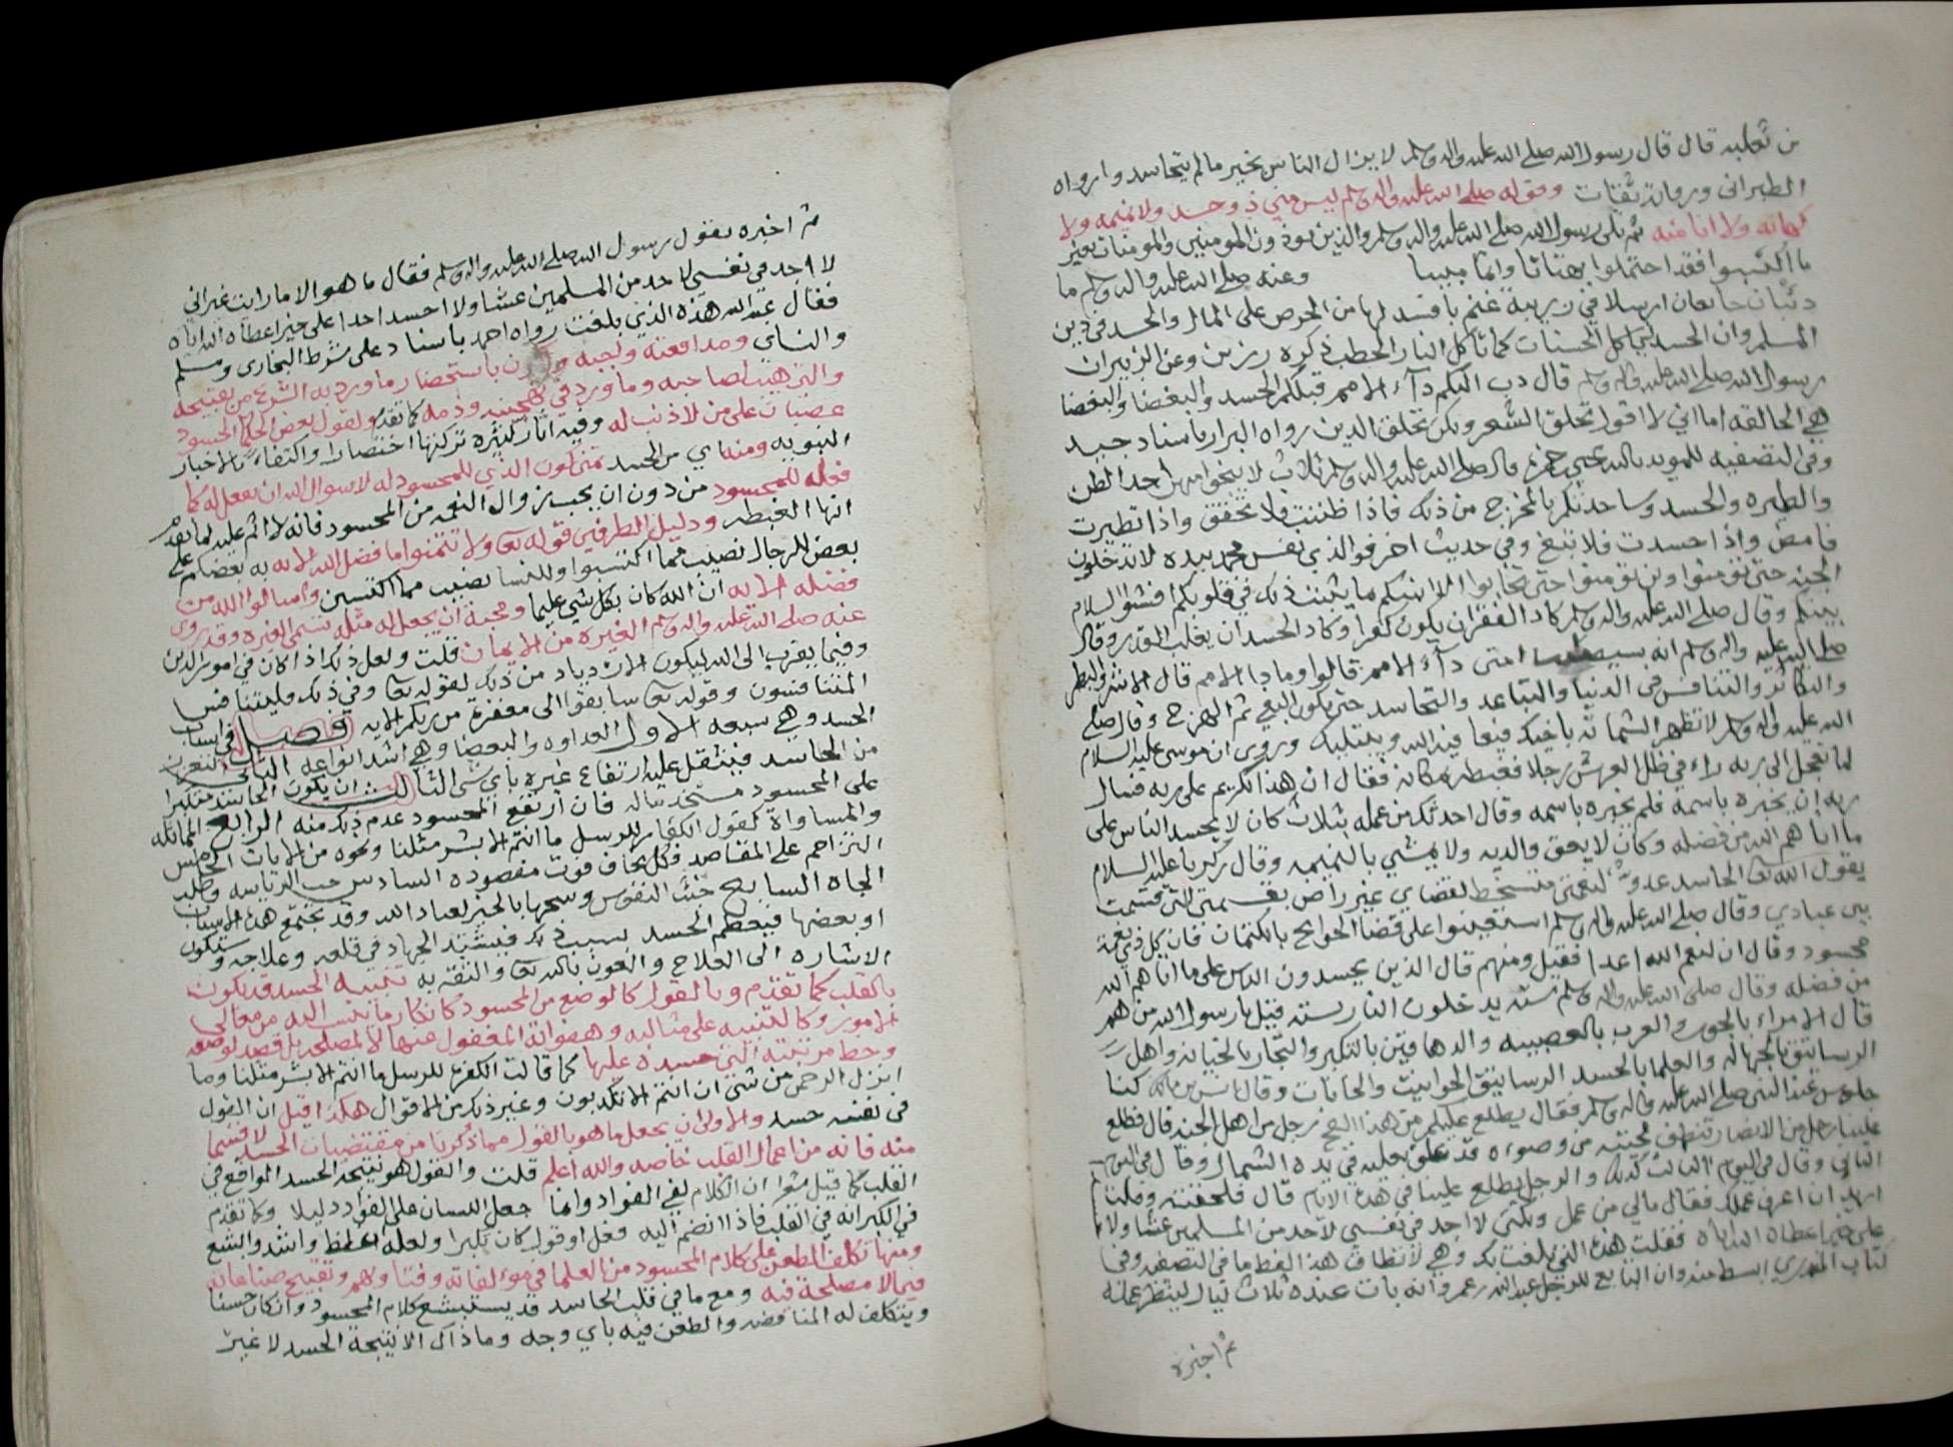 بن ثعلبه قال قال رسول الله صلى الله عليه واله وسلم لا يزال الناس بخير مالم يتحاسدوا رواه
الطبراني ورواته ثقات وقوله صلى الله عليه واله وسلم ليس مني ذو حسد ولا نميمه ولا
كهانه ولا انا منه ثم تلى رسول الله صلى الله عليه واله وسلم والذين يوذون المومنين والمومنات بغير
ما اكتسبوا فقد احتملوا بهتانا واثما مبينا وعنه صلى الله عليه واله وسلم ما
ذئبان جائعان ارسلا في زريبة غنم بافسد لها من الحرص على المال والحسد في دين
المسلم وان الحسد لياكل الحسنات كما تاكل النار الحطب ذكره رزين وعن الزبير ان
رسول الله صلى الله عليه واله وسلم قال دب اليكم دآء الامم قبلكم الحسد والبغضا والبغضا
هي الحالقه اما اني لا اقول تحلق الشعر ولكن تحلق الدين رواه البزار باسناد جيد
وفي التصفيه للمويد بالله يحيى بن حمزه قال صلى الله عليه واله وسلم ثلاث لا ينجو منهن احد الظن
والطيره والحسد وساحدثكم بالمخرج من ذلك فاذا ظننت فلا تحقق واذا تطيرت
فامض واذا حسدت فلا تبغ وفي حديث اخر فوالذي نفس محمد بيده لا تدخلون
الجنه حتى تومنوا ولن تومنوا حتى تحابوا الا انبيكم ما يثبت ذلك في قلوبكم افشوا السلام
بينكم وقال صلى الله عليه واله وسلم كاد الفقر ان يكون كفرا وكاد الحسد ان يغلب القدر وقال
صلى الله عليه واله وسلم انه سيصيب امتى دآء الامم قالوا وما دا الامم قال الاشر والبطر
والتكاثر والتنافس في الدنيا والتباعد والتحاسد حتى يكون البغي ثم الهرج وقال صلى
الله عليه واله وسلم لا تظهر الشماته باخيك فيعافيه الله ويبتليك وروي ان موسى عليه السلام
لما تعجل الى ربه راء في ظل العرش رجلا فغبطه بمكانه فقال ان هذا لكريم على ربه فسال
ربه ان يخبره باسمه فلم يخبره باسمه وقال احدثك من عمله بثلاث كان لا يحسد الناس على
ما اتاهم الله من فضله وكان لا يعق والديه ولا يمشي بالنميمه وقال زكريا عليه السلام
يقول الله تعالى الحاسد عدو لنعمتي متسخط لقضاي غير راض بقسمتي التي قسمت
بين عبادي وقال صلى الله عليه واله وسلم استعينوا على قضا الحوايج بالكتمان فان كل ذي نعمة
محسود وقال ان لنعم الله اعدا فقيل ومنهم قال الذين يحسدون الناس على ما اتاهم الله
من فضله وقال صلى الله عليه واله وسلم سته يدخلون النار بسته قيل يا رسول الله من هم
قال الامراء بالجور والعرب بالعصبيه والدهاقين بالتكبر والتجار بالخيانه واهل
الرساتيق بالجهاله والعلما بالحسد الرساتيق الحوانيت والحانات وقال انس بن مالك كنا
جلوس عند النبي صلى الله عليه واله وسلم فقال يطلع عليكم من هذا الفج رجل من اهل الجنه قال فطلع
علينا رجل من الانصار تنطف لحيته من وضوءه قد علق نعليه في يده الشمال وقال في اليوم
الثاني وقال في اليوم الثالث كذلك والرجل يطلع علينا في هذه الايام قال فلحقته وقلت
اريد ان اعرف عملك فقال مالي من عمل ولكني لا اجد في نفسي لاحد من المسلمين غشا ولا
على خير اعطاه الله اياه فقلت هذه التي بلغت بك وهي لا تطاق هذا لفظ ما في التصفيه وفي
كتاب المنذري ابسط منه وان التابع للرجل عبد الله بن عمر وانه بات عنده ثلاث ليال لينظر عمله
ثم اخبره
ثم اخبره بقول رسول الله صلى الله عليه واله وسلم فقال ما هو الا ما رايت غير اني
لا اجد في نفسي لاحد من المسلمين غشا ولا احسد احدا على خير اعطاه الله اياه
فقال عبد الله هذه الذي بلغت رواه احمد باسناد على شرط البخاري ومسلم
والنساي ومدافعته واجبه باستحضار ما ورد به الشرع من تقبيحه
والترهيب لصاحبه وما ورد في تهجينه وذمه كما تقدم ولقول بعض الحكما الحسود
غضبان على من لا ذنب له وفيه اثار كثيره تركتها اختصارا واكتفاء بالاخبار
النبويه ومنه اي من الحسد تمني كون الذي للمحسود له لا سوال الله ان يفعل له كما
فعله للمحسود من دون ان يحب زوال النعمه من المحسود فانه لا اثم عليه لما تقدم
انها الغبطه ودليل الطرفين قوله تعالى ولا تتمنوا ما فضل الله به بعضكم على
بعض للرجال نصيب مما اكتسبوا وللنسا نصيب مما اكتسبن واسالوا الله من
فضله الايه ان الله كان بكل شي عليما ومحبة ان يجعل له مثله تسمى الغيره وقد روي
عنه صلى الله عليه واله وسلم الغيره من الايمان قلت ولعل ذلك اذا كان في امور الدين
وفيما يقرب الى الله ليكون الازدياد من ذلك لقوله تعالى وفي ذلك فليتنافس
المتنافسون وقوله تعالى سابقوا الى مغفرة من ربكم الايه فصل في اسباب
الحسد وهي سبعه الاول العداوه والبغضا وهي اشد انواعه الثاني التعزز
من الحاسد فيثقل عليه ارتفاع غيره باي شي الثالث ان يكون الحاسد متكبرا
على المحسود مستخدما له فان ارتفع المحسود عدم ذلك منه الرابع المماثله
والمساواة كقول الكفار للرسل ما انتم الا بشر مثلنا ونحوه من الايات الخامس
التزاحم على المقاصد فكل يخاف فوت مقصوده السادس حب الرياسه وطلب
الجاه السابع خبث النفوس وشحها بالخير لعباد الله وقد تجتمع هذه الاسباب
او بعضها فيعظم الحسد بسبب ذلك فيشتد الجهاد في قلعه وعلاجه وستكون
الاشاره الى العلاج والعون بالله تعالى والثقه به تنبيه الحسد قد يكون
بالقلب كما تقدم وبالقول كالوضع من المحسود كانكار ما ينسب اليه من معالي
الامور وكالتنبيه على مثالبه وهفواته المغفول عنها لا لمصلحه بل قصد لوضعه
وحط مرتبته التي حسده عليها كما قالت الكفره للرسل ما انتم الا بشر مثلنا وما
انزل الرحمن من شي ان انتم الا تكذبون وغير ذلك من الاقوال هكذا قيل ان القول
في نفسه حسد والاولى ان يجعل ما هو بالقول مما ذكرنا من مقتضيات الحسد لا قسما
منه فانه من اعمال القلب خاصه والله اعلم قلت والقول هو نتيجة الحسد الواقع في
القلب كما قيل ان الكلام لفي الفواد وانما جعل اللسان على الفؤاد دليلا وكما تقدم
في الكبر انه في القلب فاذا انضم اليه فعل او قول كان تكبرا ولعله اغلظ واشد والشيع
ومنها تكلف الطعن على كلام المحسود من العلما في مولفاته وفتاويهم وتقبيح صناعاته
فيما لا مصلحة فيه ومع ما في قلب الحاسد قد يستبشع كلام المحسود وان كان حسنا
ويتكلف له المناقضه والطعن فيه باي وجه وما ذاك الا نتيجة الحسد لا غير